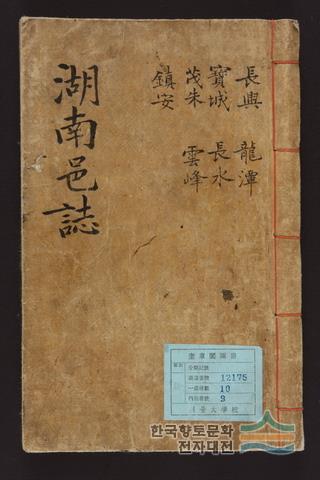 湖南邑誌
長興 龍潭
寶城 長水
茂朱 雲峰
鎭安
奎章閣圖書
12175
10
9
한국향토문화
전자대전